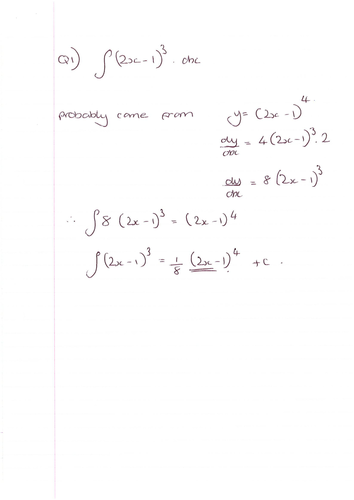 Q1) ∫(2x-1)³.dx
probably came from y=(2x-1)⁴.
dy/dx = 4(2x-1)³.2
dy/dx = 8(2x-1)³
∴ ∫8(2x-1)³ = (2x-1)⁴
∫(2x-1)³ = 1/8 (2x-1)⁴ +c.